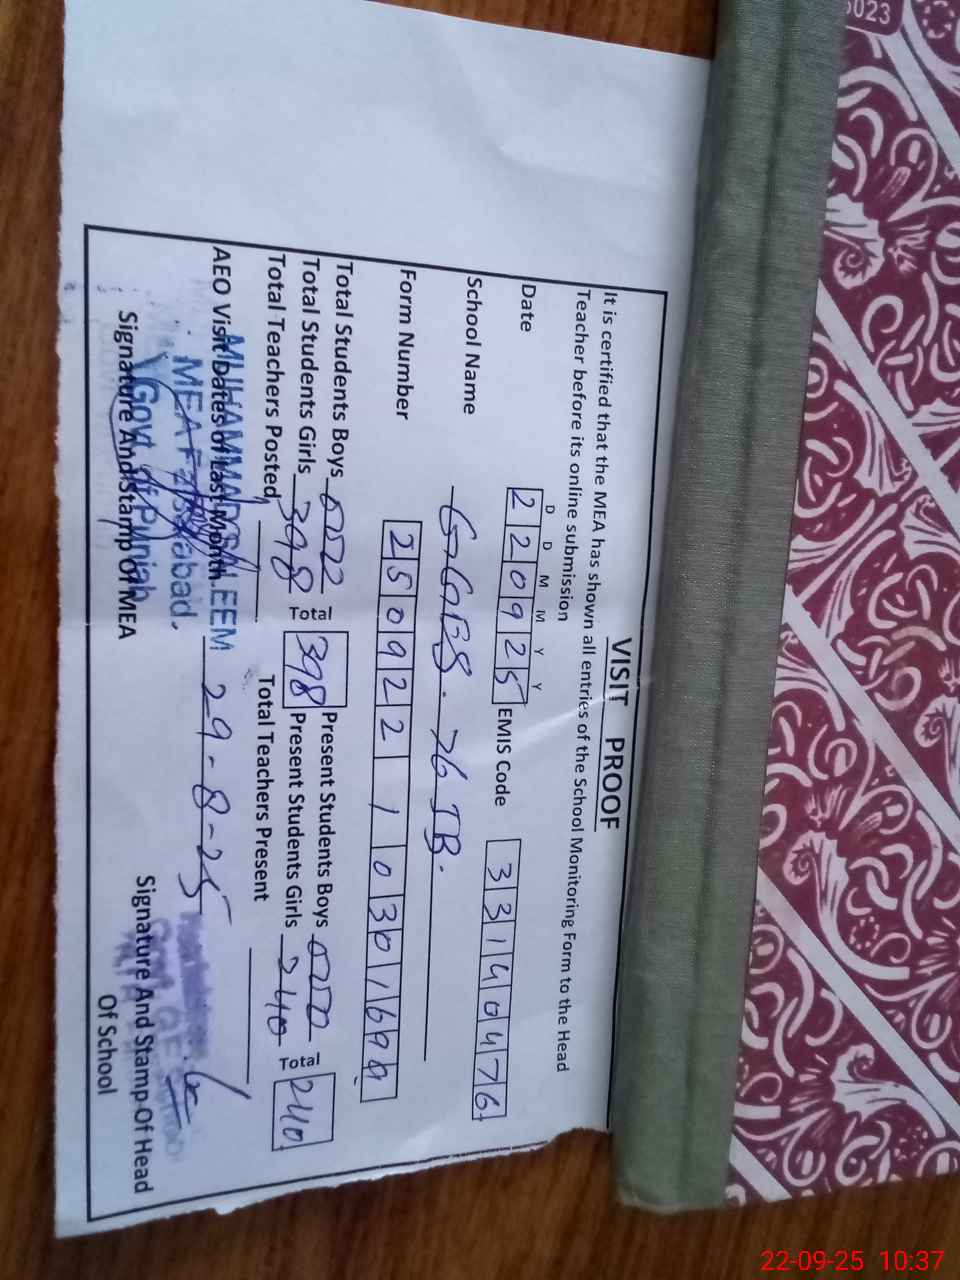 VISIT PROOF
It is certified that the MEA has shown all entries of the School Monitoring Form to the Head
Teacher before its online submission
D D M M Y Y
Date 220925 EMIS Code 33140476
School Name GGES. 76 JB.
Form Number 250922 1 0301699
Total Students Boys Present Students Boys
Total Students Girls 398 Total 398 Present Students Girls 240 Total 240
Total Teachers Posted Total Teachers Present
AEO Visit Dates of Last Month 29-8-25
MUHAMMAD SALEEM
MEA Faisalabad.
Govt. of Punjab
Signature And Stamp Of MEA
Signature And Stamp Of Head
Of School
22-09-25 10:37